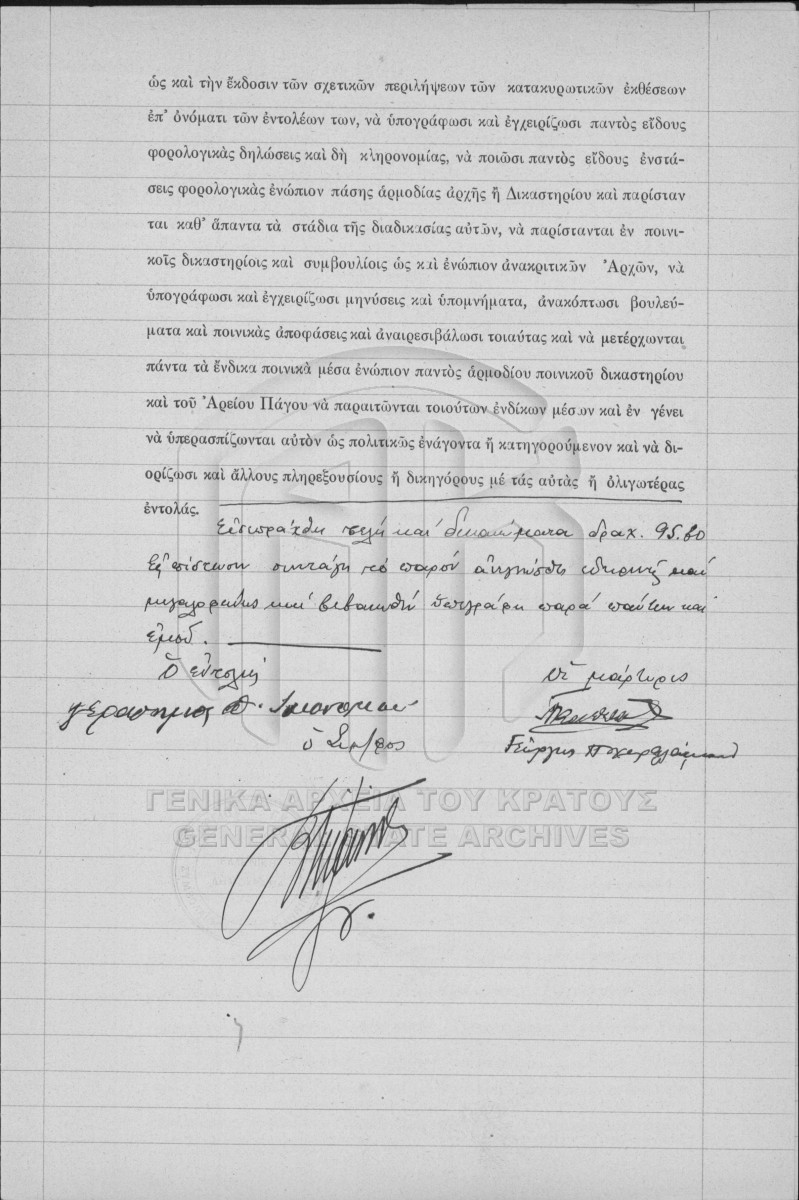 ὡς καὶ τὴν ἔκδοσιν τῶν σχετικῶν περιλήψεων τῶν κατακυρωτικῶν ἐκθέσεων
ἐπ' ὀνόματι τῶν ἐντολέων των, νὰ ὑπογράφωσι καὶ ἐγχειρίζωσι παντὸς εἴδους
φορολογικὰς δηλώσεις καὶ δὴ κληρονομίας, νὰ ποιῶσι παντὸς εἴδους ἐνστά-
σεις φορολογικὰς ἐνώπιον πάσης ἁρμοδίας ἀρχῆς ἢ Δικαστηρίου καὶ παρίσταν
ται καθ' ἅπαντα τὰ στάδια τῆς διαδικασίας αὐτῶν, νὰ παρίστανται ἐν ποινι-
κοῖς δικαστηρίοις καὶ συμβουλίοις ὡς καὶ ἐνώπιον ἀνακριτικῶν Ἀρχῶν, νὰ
ὑπογράφωσι καὶ ἐγχειρίζωσι μηνύσεις καὶ ὑπομνήματα, ἀνακόπτωσι βουλεύ-
ματα καὶ ποινικὰς ἀποφάσεις καὶ ἀναιρεσιβάλωσι τοιαύτας καὶ νὰ μετέρχωνται
πάντα τὰ ἔνδικα ποινικὰ μέσα ἐνώπιον παντὸς ἁρμοδίου ποινικοῦ δικαστηρίου
καὶ τοῦ Ἀρείου Πάγου νὰ παραιτῶνται τοιούτων ἐνδίκων μέσων καὶ ἐν γένει
νὰ ὑπερασπίζωνται αὐτὸν ὡς πολιτικῶς ἐνάγοντα ἢ κατηγορούμενον καὶ νὰ δι-
ορίζωσι καὶ ἄλλους πληρεξουσίους ἢ δικηγόρους μέ τάς αὐτὰς ἢ ὀλιγωτέρας
ἐντολάς.
Εἰσεπράχθη τέλη καὶ δικαιώματα δραχ. 95.80
Εἰς πίστωσιν συνετάγη τὸ παρὸν ἀνεγνώσθη καὶ
μεγαλοφώνως καὶ βεβαιωθὲν ὑπεγράφη παρὰ πάντων καὶ
ἐμοῦ.
Ὁ ἐντολεύς
Οἱ μάρτυρες
γεράσημος
ὁ Συμ/φος
Γεώργιος
ΓΕΝΙΚΑ ΑΡΧΕΙΑ ΤΟΥ ΚΡΑΤΟΥΣ
GENERAL STATE ARCHIVES